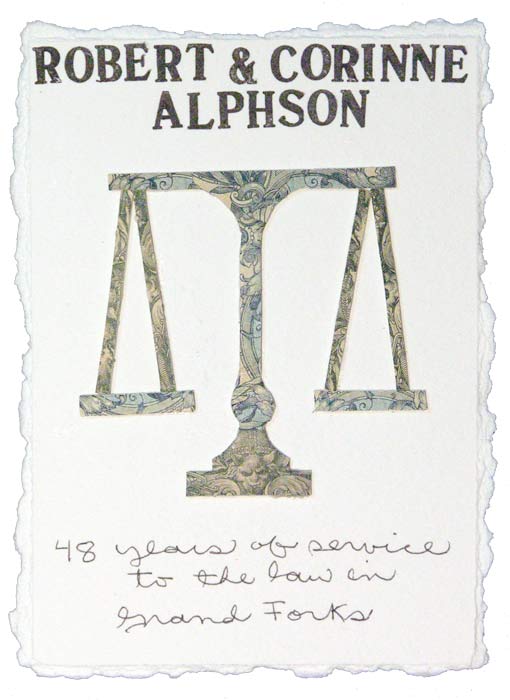 ROBERT & CORINNE
ALPHSON
48 years of service
to the law in
Grand Forks